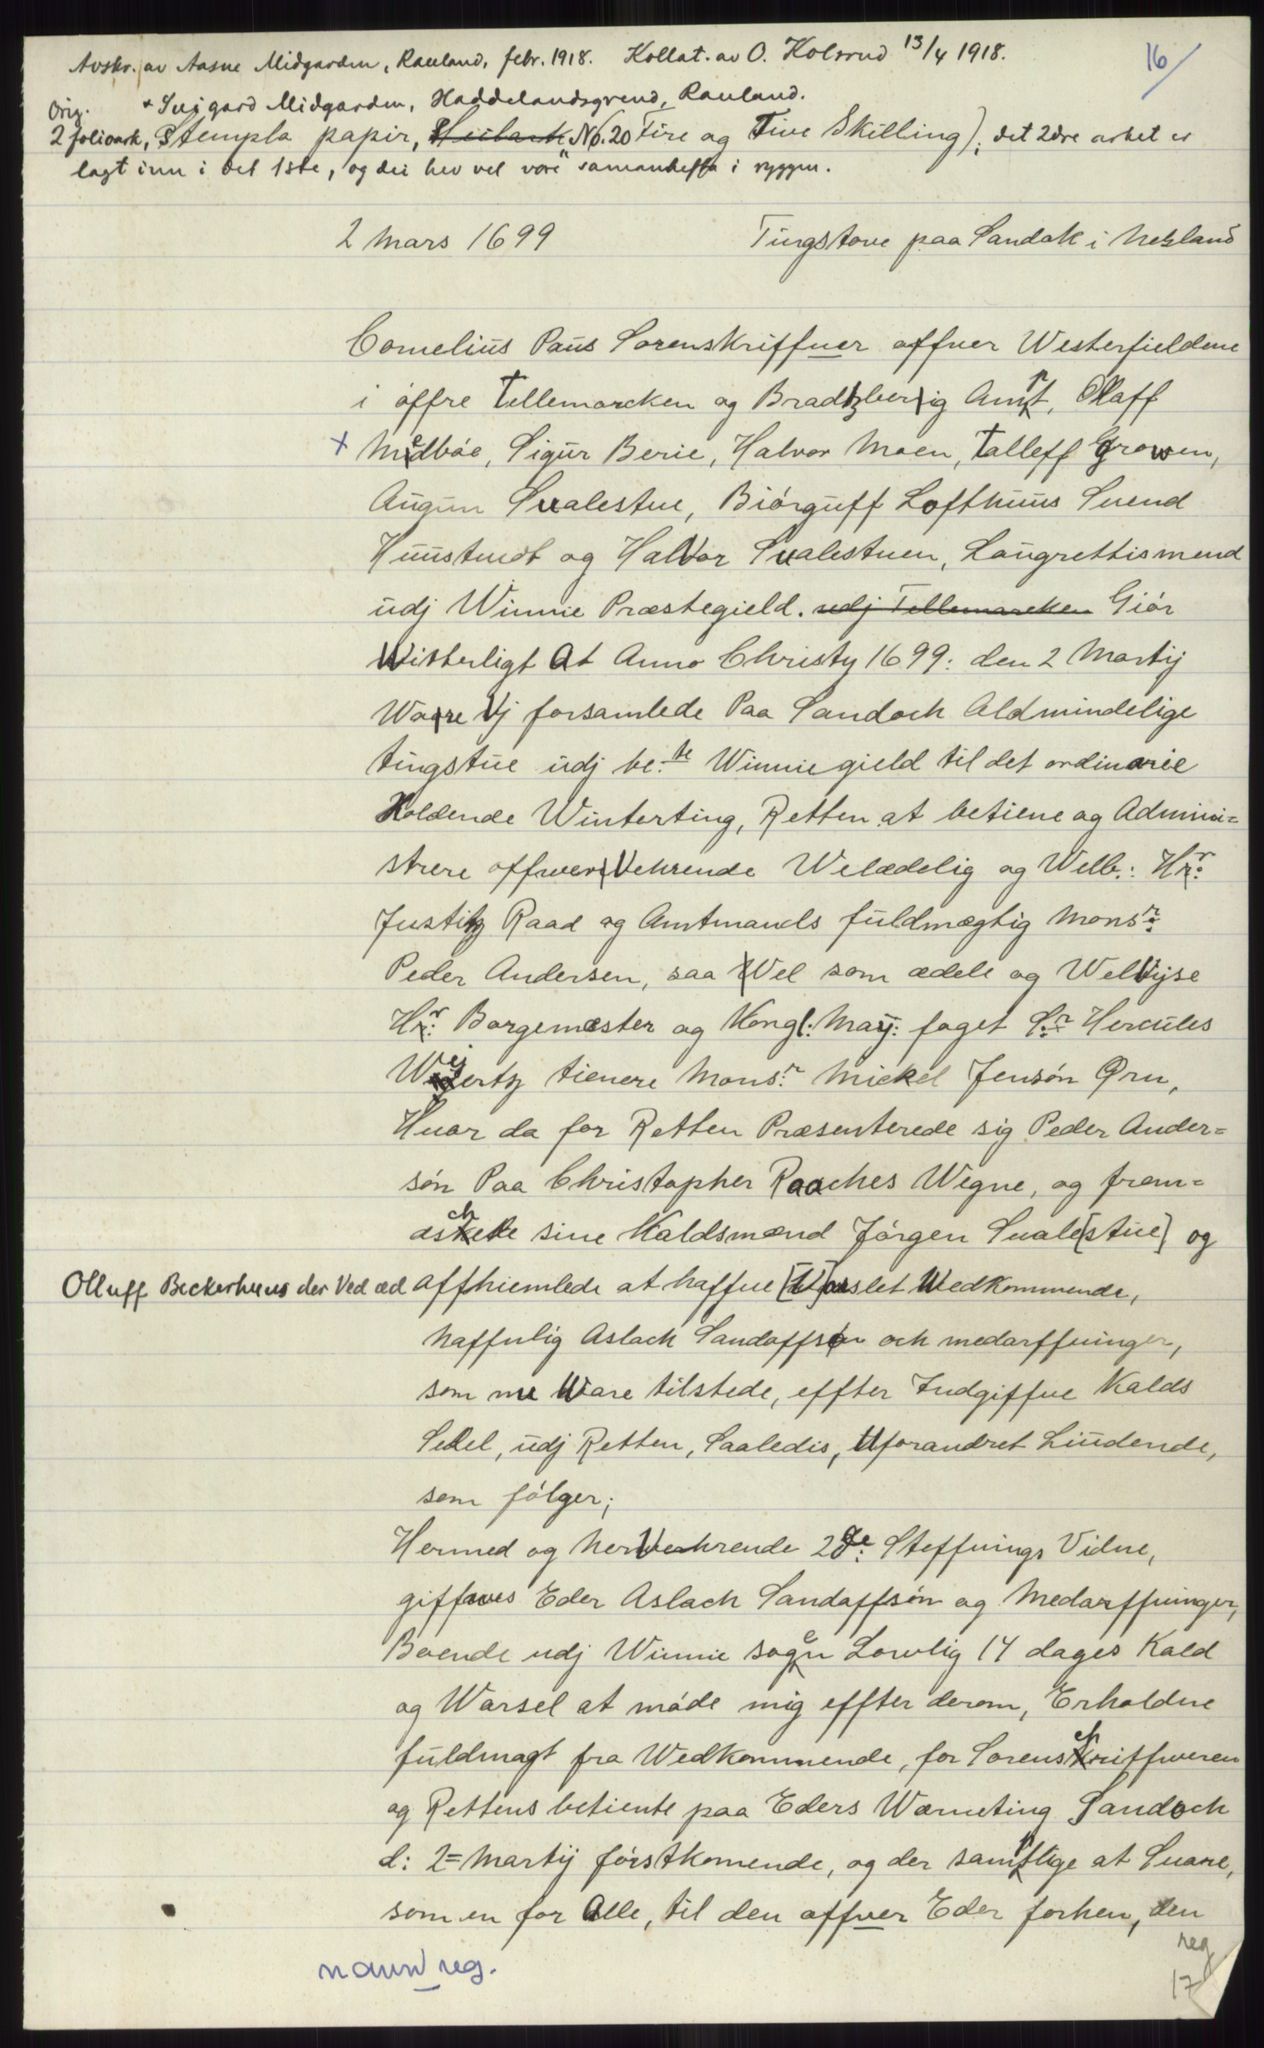 Avskr. av Aasne Midgarden, Rauland, febr. 1918. Kollat. av O. Kolsrud 13/4 1918.
16/
Orig. Midgarden, Haddelandsgrend, Rauland.
2 folioark, Stempla papir, No. 20 Fire og Tive Skilling); det 2dre arket er
lagt inn i det 1ste, og dei hev vel vore samanhefta i ryggen.
2 Mars 1699 Tingstove paa Sandok i
Cornelius Paus Sorenskriffuer offuer Westerfieldene
i øffre Tellemarcken og Bradtzberig Ampt, Olaff
+ Medbøe, Sigur Berie, Halvor Moen, Talleff Growen,
Augun Sualestue, Biórguff Lofthuus Suend
Huustuedt og Halvor Sualestuen, Laugrettismend
udj Winnie Præstegield. udj Tellemarcken Giór
Witterligt At Anno Christy 1699: den 2 Martij
Ware Vj forsamlede Paa Sandoch Aldmindelige
tingstue udj be:te Winnie gield til det ordinarie
Holdende Winterting, Retten at betiene og Admini=
strere offwerVehrende Welædelig og Welb.: Hr:
Justitz Raad og Amtmands fuldmægtig Monsr:
Peder Andersen, saa Wel som ædele og WelVijse
Hr: Borgemester og Kongl: Maÿ: foget Sr: Hercules
Weijertz tienere Monsr: Mickel Jensón Ørn,
Huor da for Retten Præsenterede sig Peder Ander=
són Paa Christopher Raaches Wegne, og frem=
æschete sine Kaldsmænd Jórgen Suale[stue] og
Olluff Beckerhuus der Ved æd affhiemlede at haffue [W]arslet Wedkommende,
naffnlig Aslach Sandaffsón och medarffuinger,
som nu Ware tilstede, effter Indgiffue Kalds
Sedel, udj Retten, Saaledis, Uforandret Liudende,
som fólger;
Hermed og nerVehrende 2de: Steffnings Vidne,
giffues Eder Aslach Sandaffsón og Medarffuinger,
Boende udj Winnie sogen Lowlig 14 dages Kald
og Warsel at móde mig effter derom, Erholdene
fuldmagt fra Wedkommende, for Sorenschriffweren
og Rettens betiente paa Eders Warneting Sandoch
d: 2= Martij fórstkomende, og der samptlige at Suare,
som en for Alle, til den offuer Eder forhen, den
navn reg.
reg
17